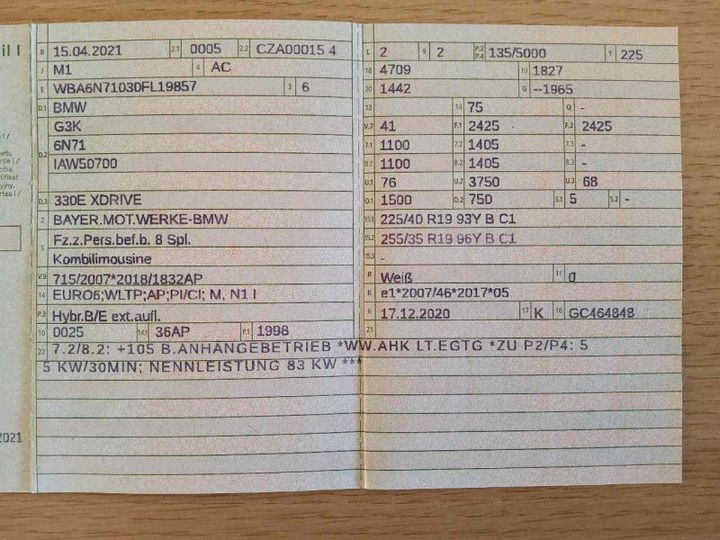 il I
B 15.04.2021 2.1 0005 2.2 CZA00015 4
J M1 4 AC
E WBA6N71030FL19857 3 6
D.1 BMW
G3K
D.2 6N71
IAW50700
D.3 330E XDRIVE
2 BAYER.MOT.WERKE-BMW
5 Fz.z.Pers.bef.b. 8 Spl.
Kombilimousine
V.9 715/2007*2018/1832AP
14 EURO6;WLTP;AP;PI/CI; M, N1 I
P.3 Hybr.B/E ext.aufl.
10 0025 14.1 36AP P.1 1998
L 2 9 2 P.2 P.4 135/5000 T 225
18 4709 19 1827
20 1442 G --1965
12 13 75 Q -
V.7 41 F.1 2425 F.2 2425
7.1 1100 7.2 1405 7.3 -
8.1 1100 8.2 1405 8.3 -
U.1 76 U.2 3750 U.3 68
O.1 1500 O.2 750 S.1 5 S.2 -
15.1 225/40 R19 93Y B C1
15.2 255/35 R19 96Y B C1
15.3 -
R Weiß 11 0
K e1*2007/46*2017*05
6 17.12.2020 17 K 16 GC464848
21
22 7.2/8.2: +105 B.ANHÄNGEBETRIEB *WW.AHK LT.EGTG *ZU P2/P4: 5
5 KW/30MIN; NENNLEISTUNG 83 KW ***
2021